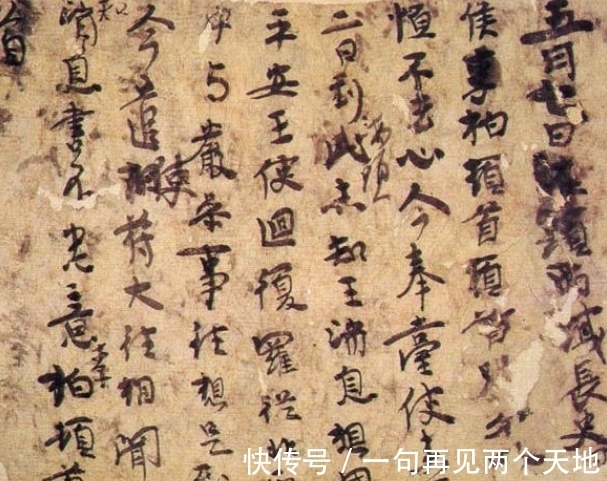 五月七日海頭西域長史
侯李柏頓首頓首別
恒不去心今奉臺使来
二日到此海頭未知王消息想國
平安王使迴復羅從北
与嚴參事往想是到
今遣使符大往相聞
知消息書不盡意李柏頓首
快传号 / 一句再见两个天地